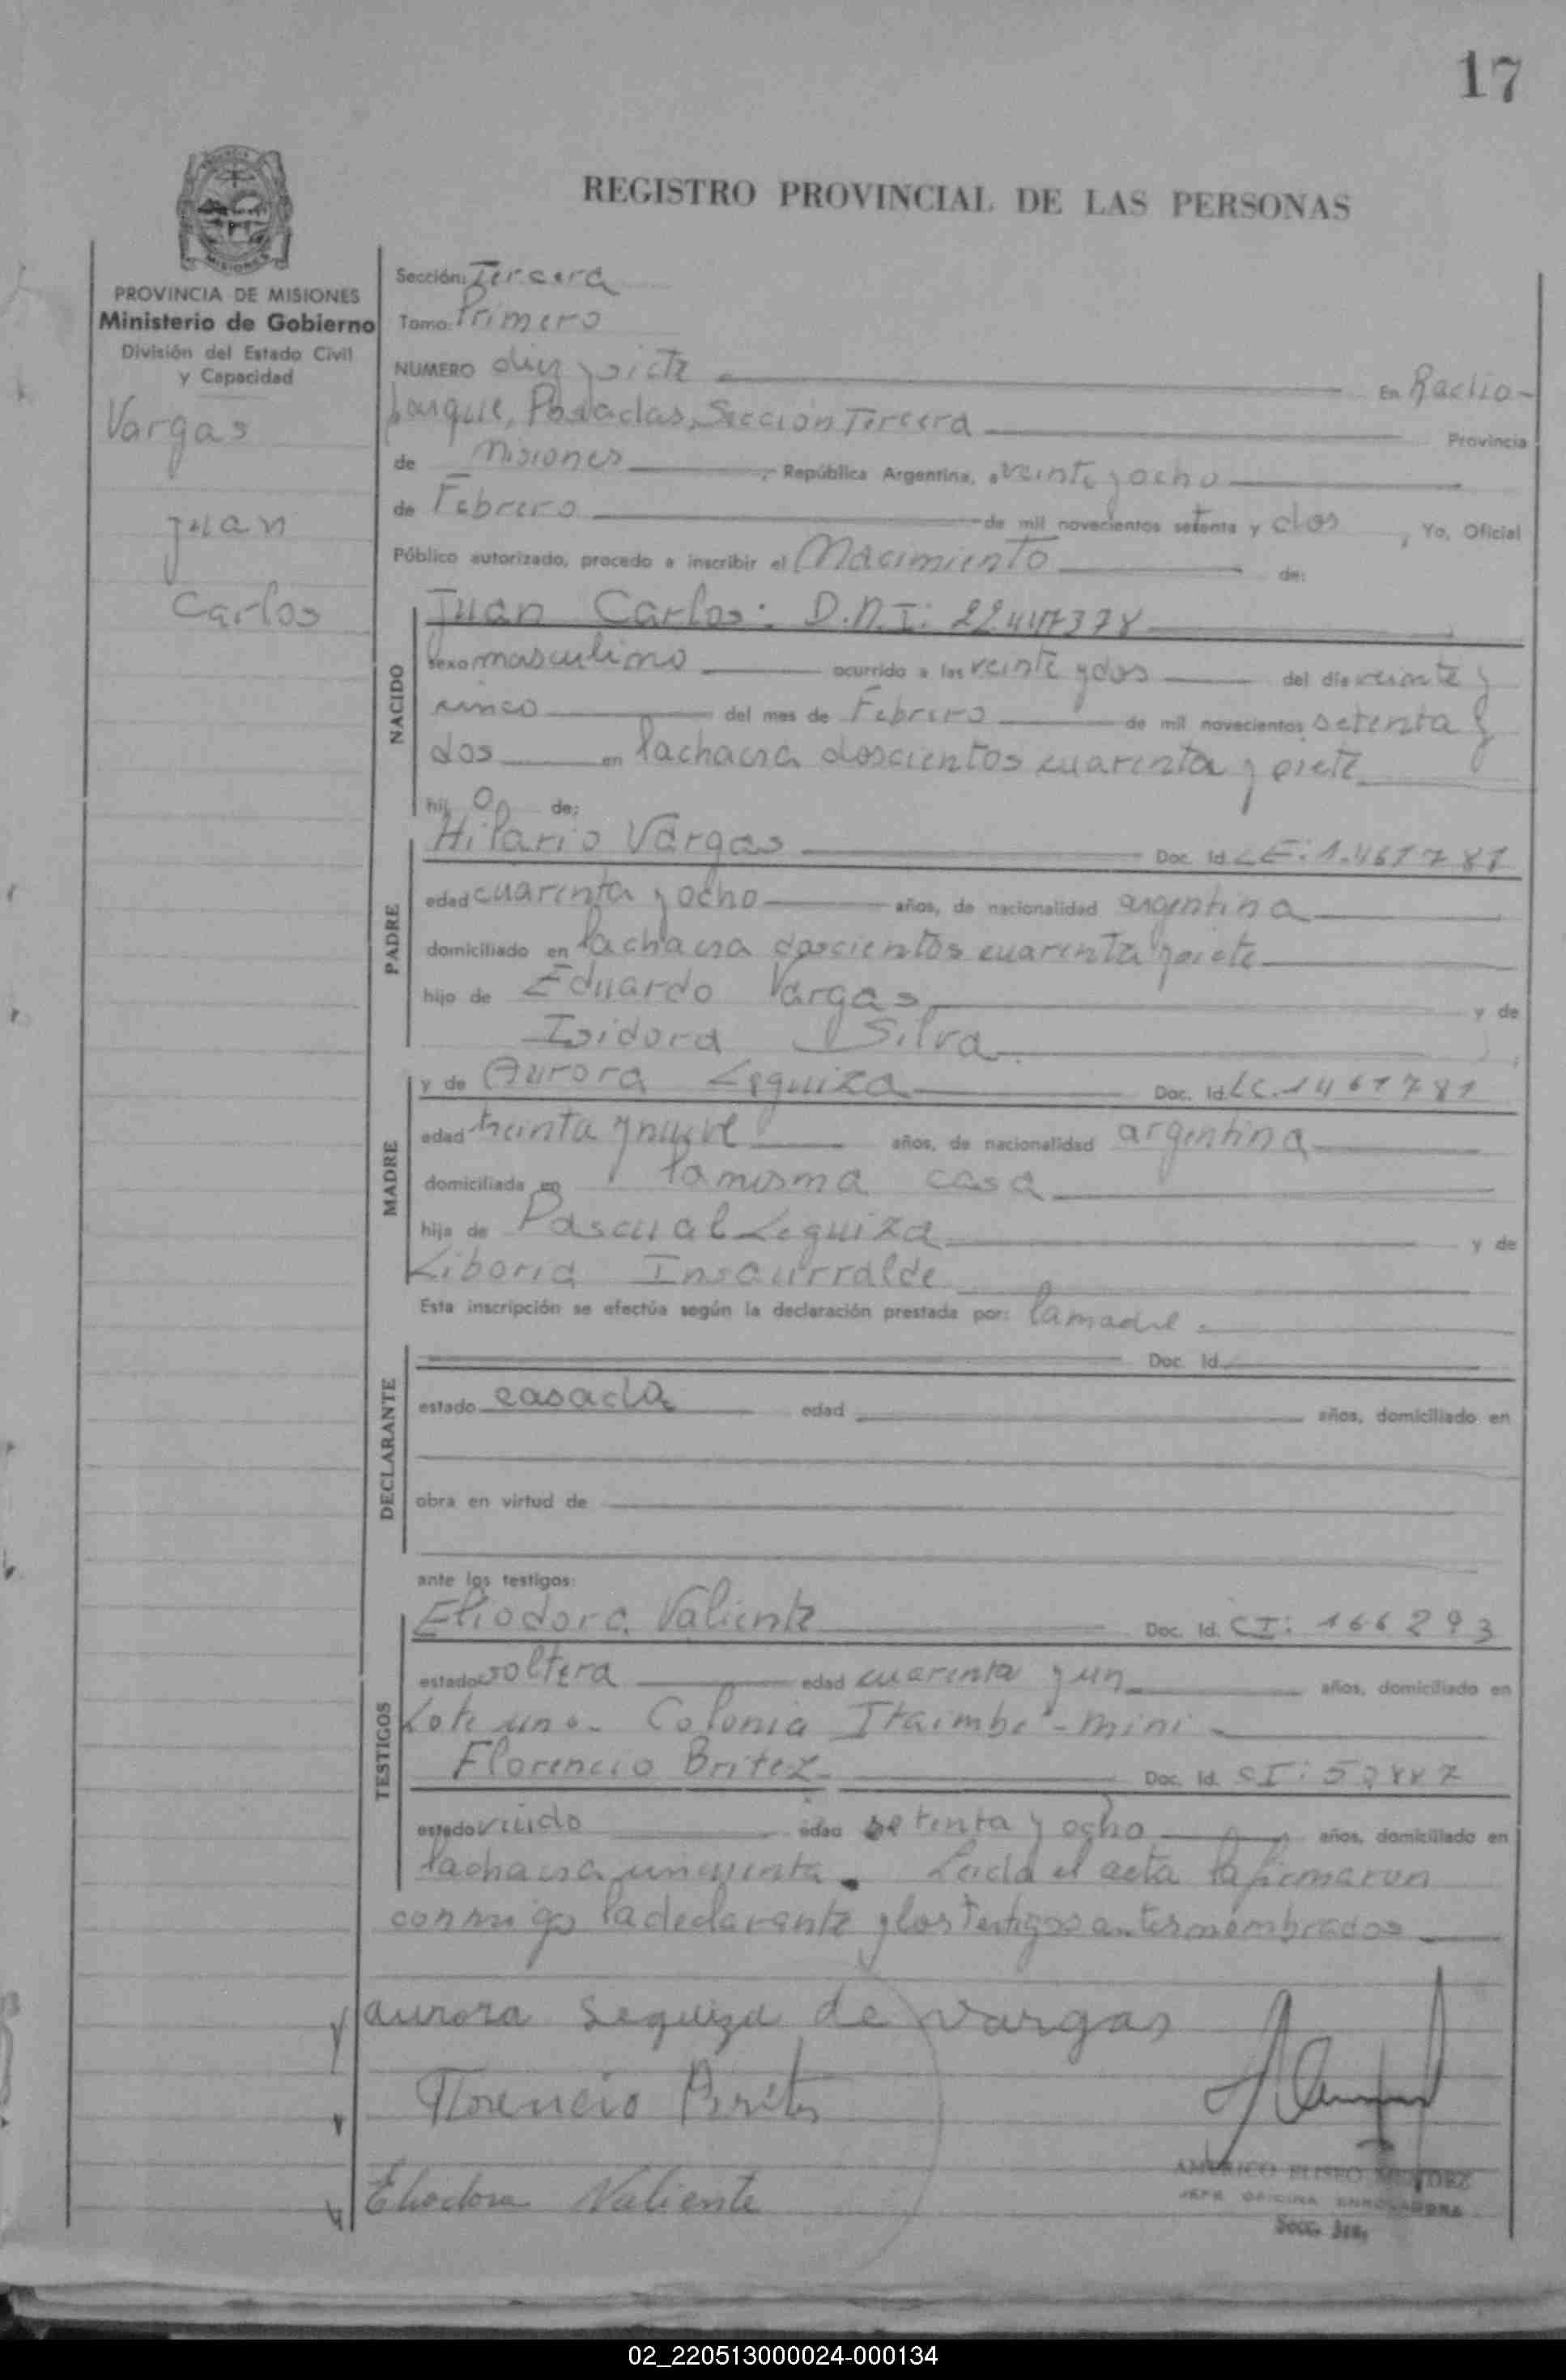 17
REGISTRO PROVINCIAL DE LAS PERSONAS
PROVINCIA DE MISIONES
Ministerio de Gobierno
División del Estado Civil
y Capacidad
Vargas
Juan
Carlos
Sección: Tercera
Tomo: Primero
NUMERO diez y siete En Radio-
parque, Posadas, Sección Tercera Provincia
de Misiones, República Argentina, a veinte y ocho
de Febrero de mil novecientos setenta y dos, Yo, Oficial
Público autorizado, procedo a inscribir el Nacimiento de:
NACIDO
Juan Carlos: D.N.I:
sexo masculino ocurrido a las veinte y dos del día veinte y
cinco del mes de Febrero de mil novecientos setenta y
dos en la chacra doscientos cuarenta y siete
hijo de:
PADRE
Hilario Vargas Doc. Id. LE: 1.461781
edad cuarenta y ocho años, de nacionalidad argentina
domiciliado en la chacra doscientos cuarenta y siete
hijo de Eduardo Vargas y de
Isidora Silva
MADRE
y de Aurora Leguiza Doc. Id. LC. 1461781
edad treinta y nueve años, de nacionalidad argentina
domiciliada en la misma casa
hija de Pascual Leguiza y de
Liboria Insaurralde
Esta inscripción se efectúa según la declaración prestada por: la madre
DECLARANTE
Doc. Id.
estado casada edad años, domiciliado en
obra en virtud de
ante los testigos:
TESTIGOS
Eliodora Valiente Doc. Id. CI: 166293
estado soltera edad cuarenta y un años, domiciliado en
Lote uno- Colonia Itaimbé-mini
Florencio Britez Doc. Id. CI:
estado viudo edad setenta y ocho años, domiciliado en
la chacra cincuenta. Leida el acta la firmaron
conmigo la declarante y los testigos antes nombrados
Aurora Leguiza de Vargas
Florencio Brites
Eliodora Valiente
AMERICO ELISEO MENDEZ
JEFE OFICINA ENROLADORA
Secc. 3ra.
02_220513000024-000134